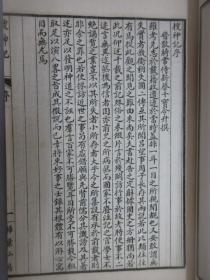 搜神記序
晉散騎常侍新蔡干寶令升撰
雖考先志於載籍收遺逸於當時蓋非一耳一目之所親聞覩也又安敢謂無
失實者哉衛朔失國二傳互其所聞呂望事周子長存其兩說若此比類往往
有焉從此觀之聞見之難一由來尚矣夫書赴告之定辭據國史之方冊猶尚若
此況仰述千載之前記殊俗之表綴片言於殘闕訪行事於故老將使事不二
迹言無異途然後為信者固亦前史之所病然而國家不廢注記之官學士不
絕誦覽之業豈不以其所失者小所存者大乎今之所集設有承於前載者則
非余之罪也若使採訪近世之事苟有虛錯願與先賢前儒分其譏謗及其著
述亦足以發明神道之不誣也羣言百家不可勝覽耳目所受不可勝載今粗
取足以演八略之旨成其微說而已幸將來好事之士錄其根體有以游心寓
目而無尤焉
搜神記
序
一
掃葉山房